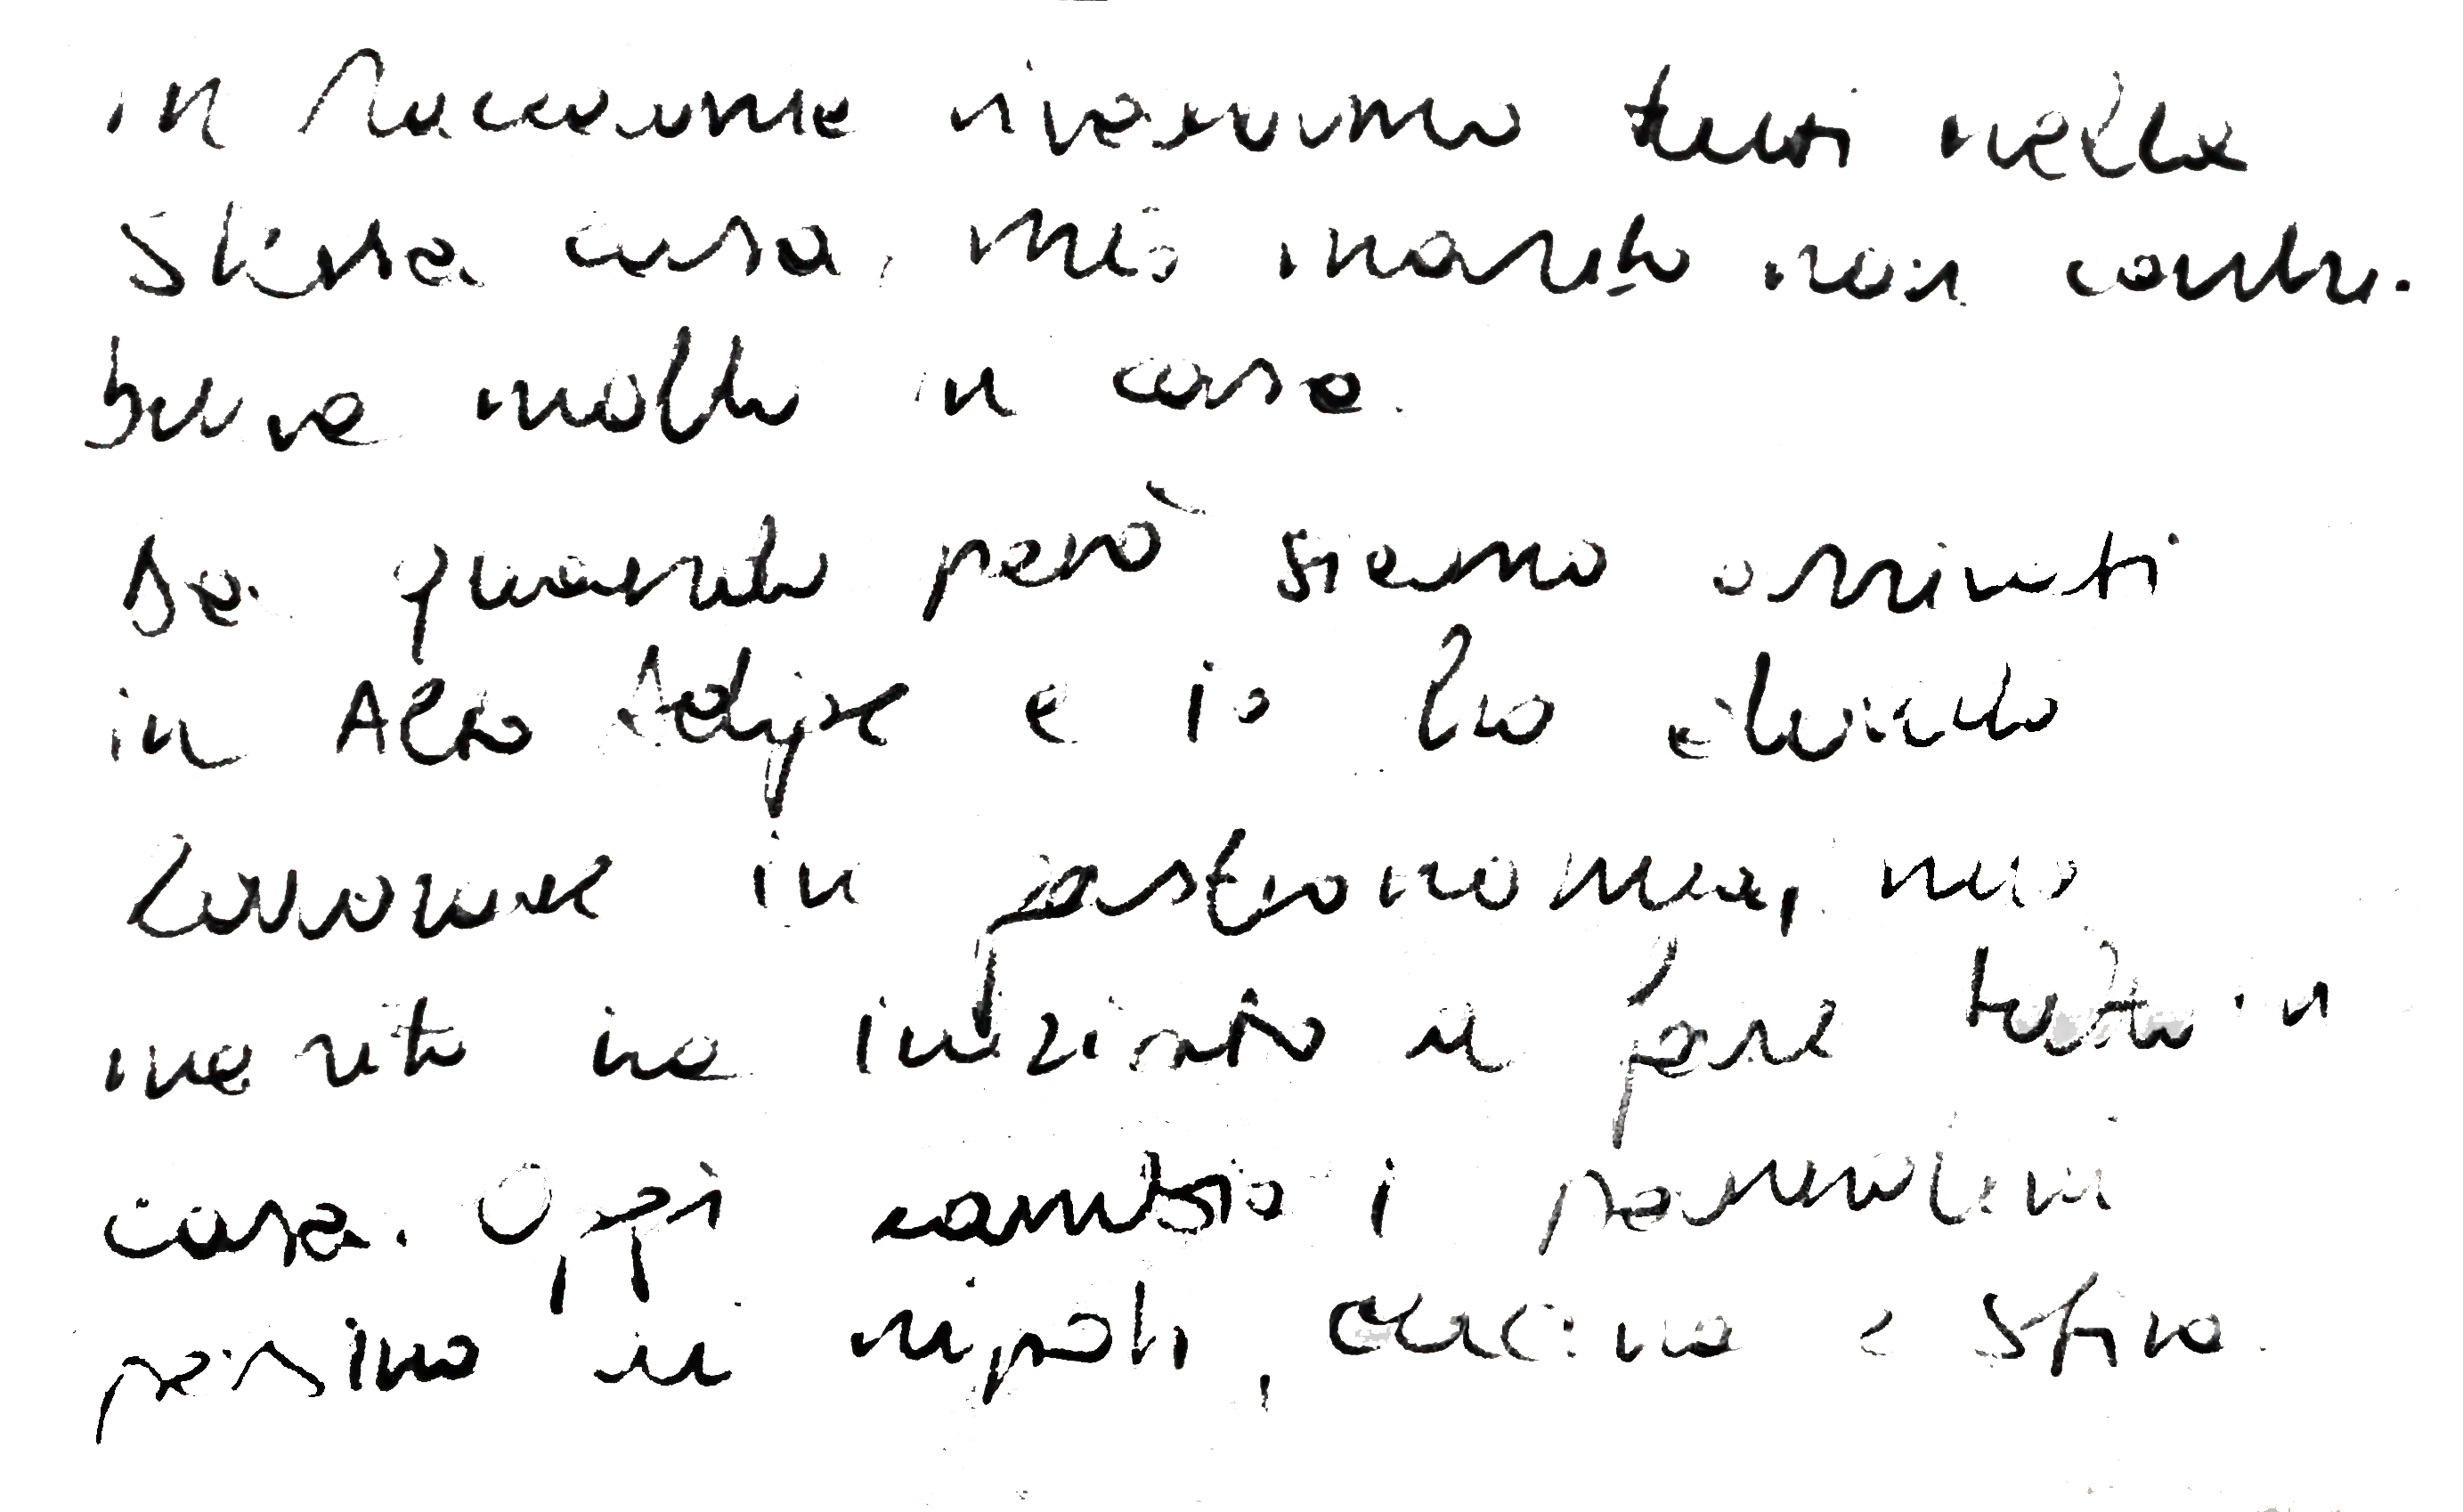 in Macedonia vivevamo tutti nella
stessa casa, mio marito non contri-
buiva molto in casa.
Da quando però siamo arrivati
in Alto Adige e io ho iniziato
lavorare in gastronomia, mio
marito ha iniziato a fare tutto in
casa. Oggi cambia i pannolini
persino ai nipoti, cucina e stira.